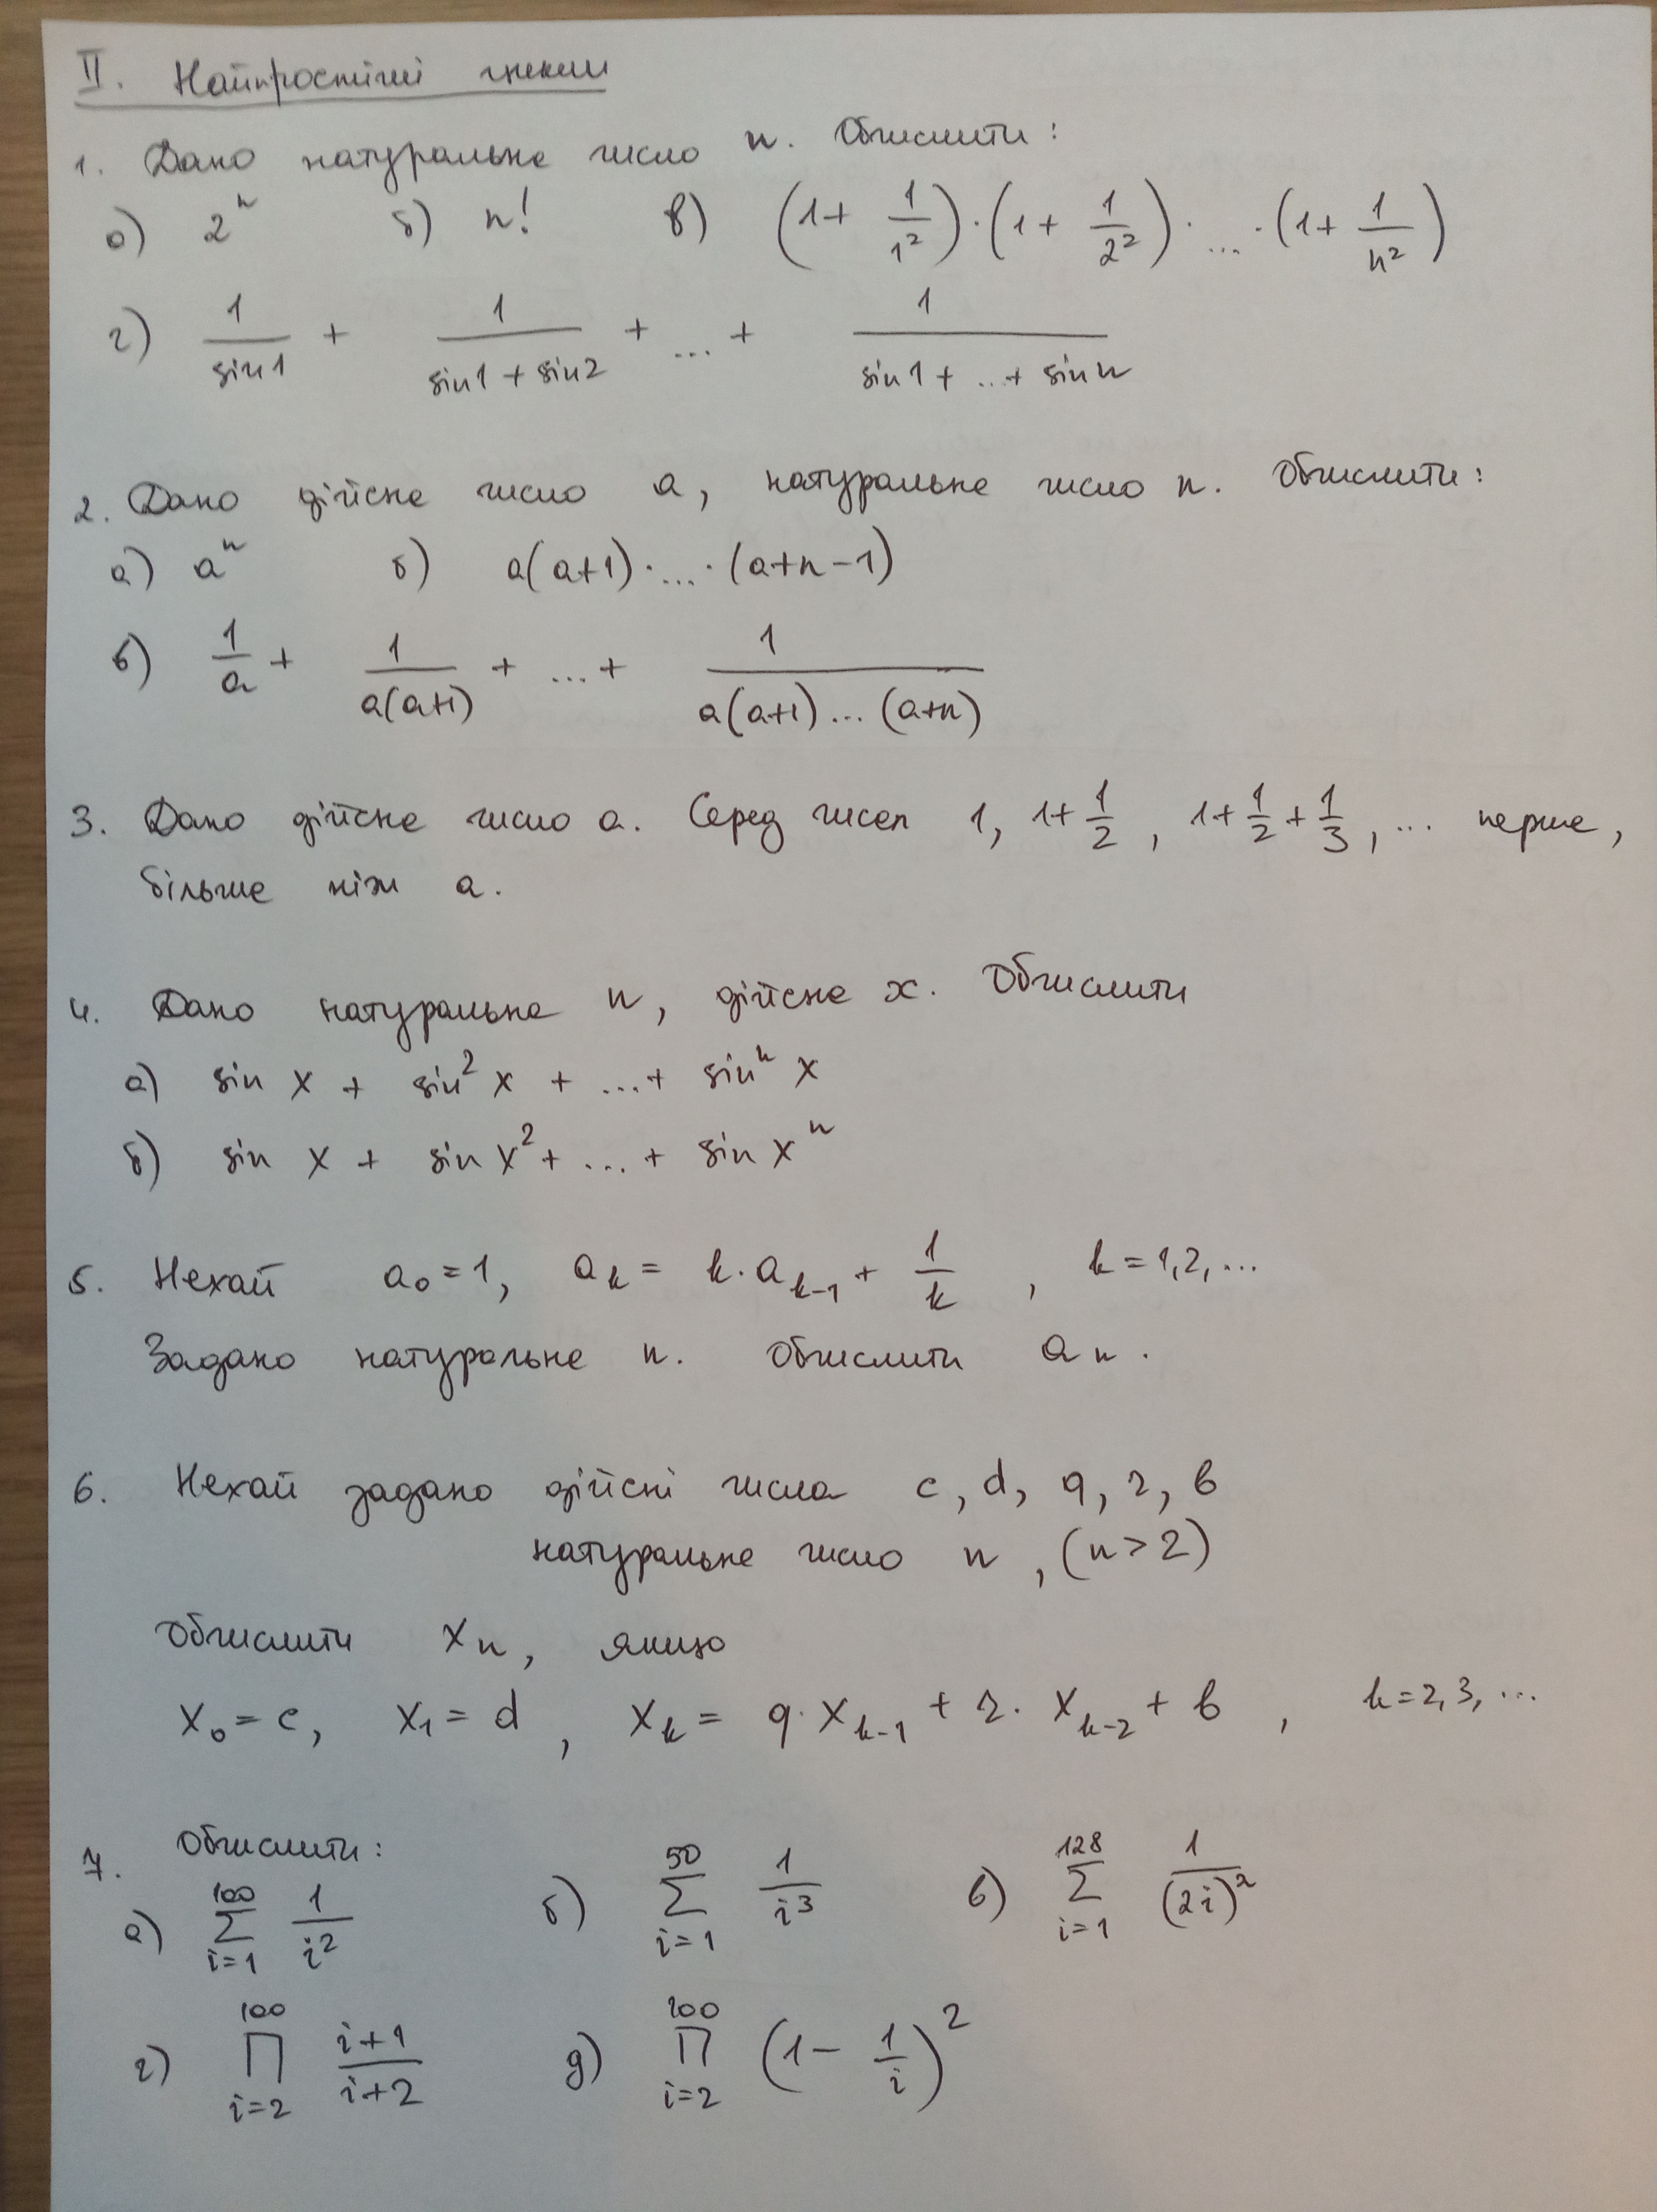 II. Найпростіші цикли
1. Дано натуральне число n. Обчислити:
а) 2^n б) n! в) (1 + 1/1^2)·(1 + 1/2^2)· ... ·(1 + 1/n^2)
г) 1/sin1 + 1/(sin1 + sin2) + ... + 1/(sin1 + ... + sin n)
2. Дано дійсне число a, натуральне число n. Обчислити:
а) a^n б) a(a+1)· ... ·(a+n-1)
в) 1/a + 1/(a(a+1)) + ... + 1/(a(a+1)...(a+n))
3. Дано дійсне число a. Серед чисел 1, 1+1/2, 1+1/2+1/3, ... перше,
більше ніж a.
4. Дано натуральне n, дійсне x. Обчислити
а) sin x + sin^2 x + ... + sin^n x
б) sin x + sin x^2 + ... + sin x^n
5. Нехай a_0 = 1, a_k = k·a_{k-1} + 1/k, k = 1,2,...
Задано натуральне n. Обчислити a_n.
6. Нехай задано дійсні числа c, d, q, r, b
натуральне число n, (n > 2)
Обчислити x_n, якщо
x_0 = c, x_1 = d, x_k = q·x_{k-1} + r·x_{k-2} + b, k = 2, 3, ...
7. Обчислити:
а) ∑_{i=1}^{100} 1/i^2 б) ∑_{i=1}^{50} 1/i^3 в) ∑_{i=1}^{128} 1/(2i)^2
г) ∏_{i=2}^{100} (i+1)/(i+2) д) ∏_{i=2}^{100} (1 - 1/i)^2